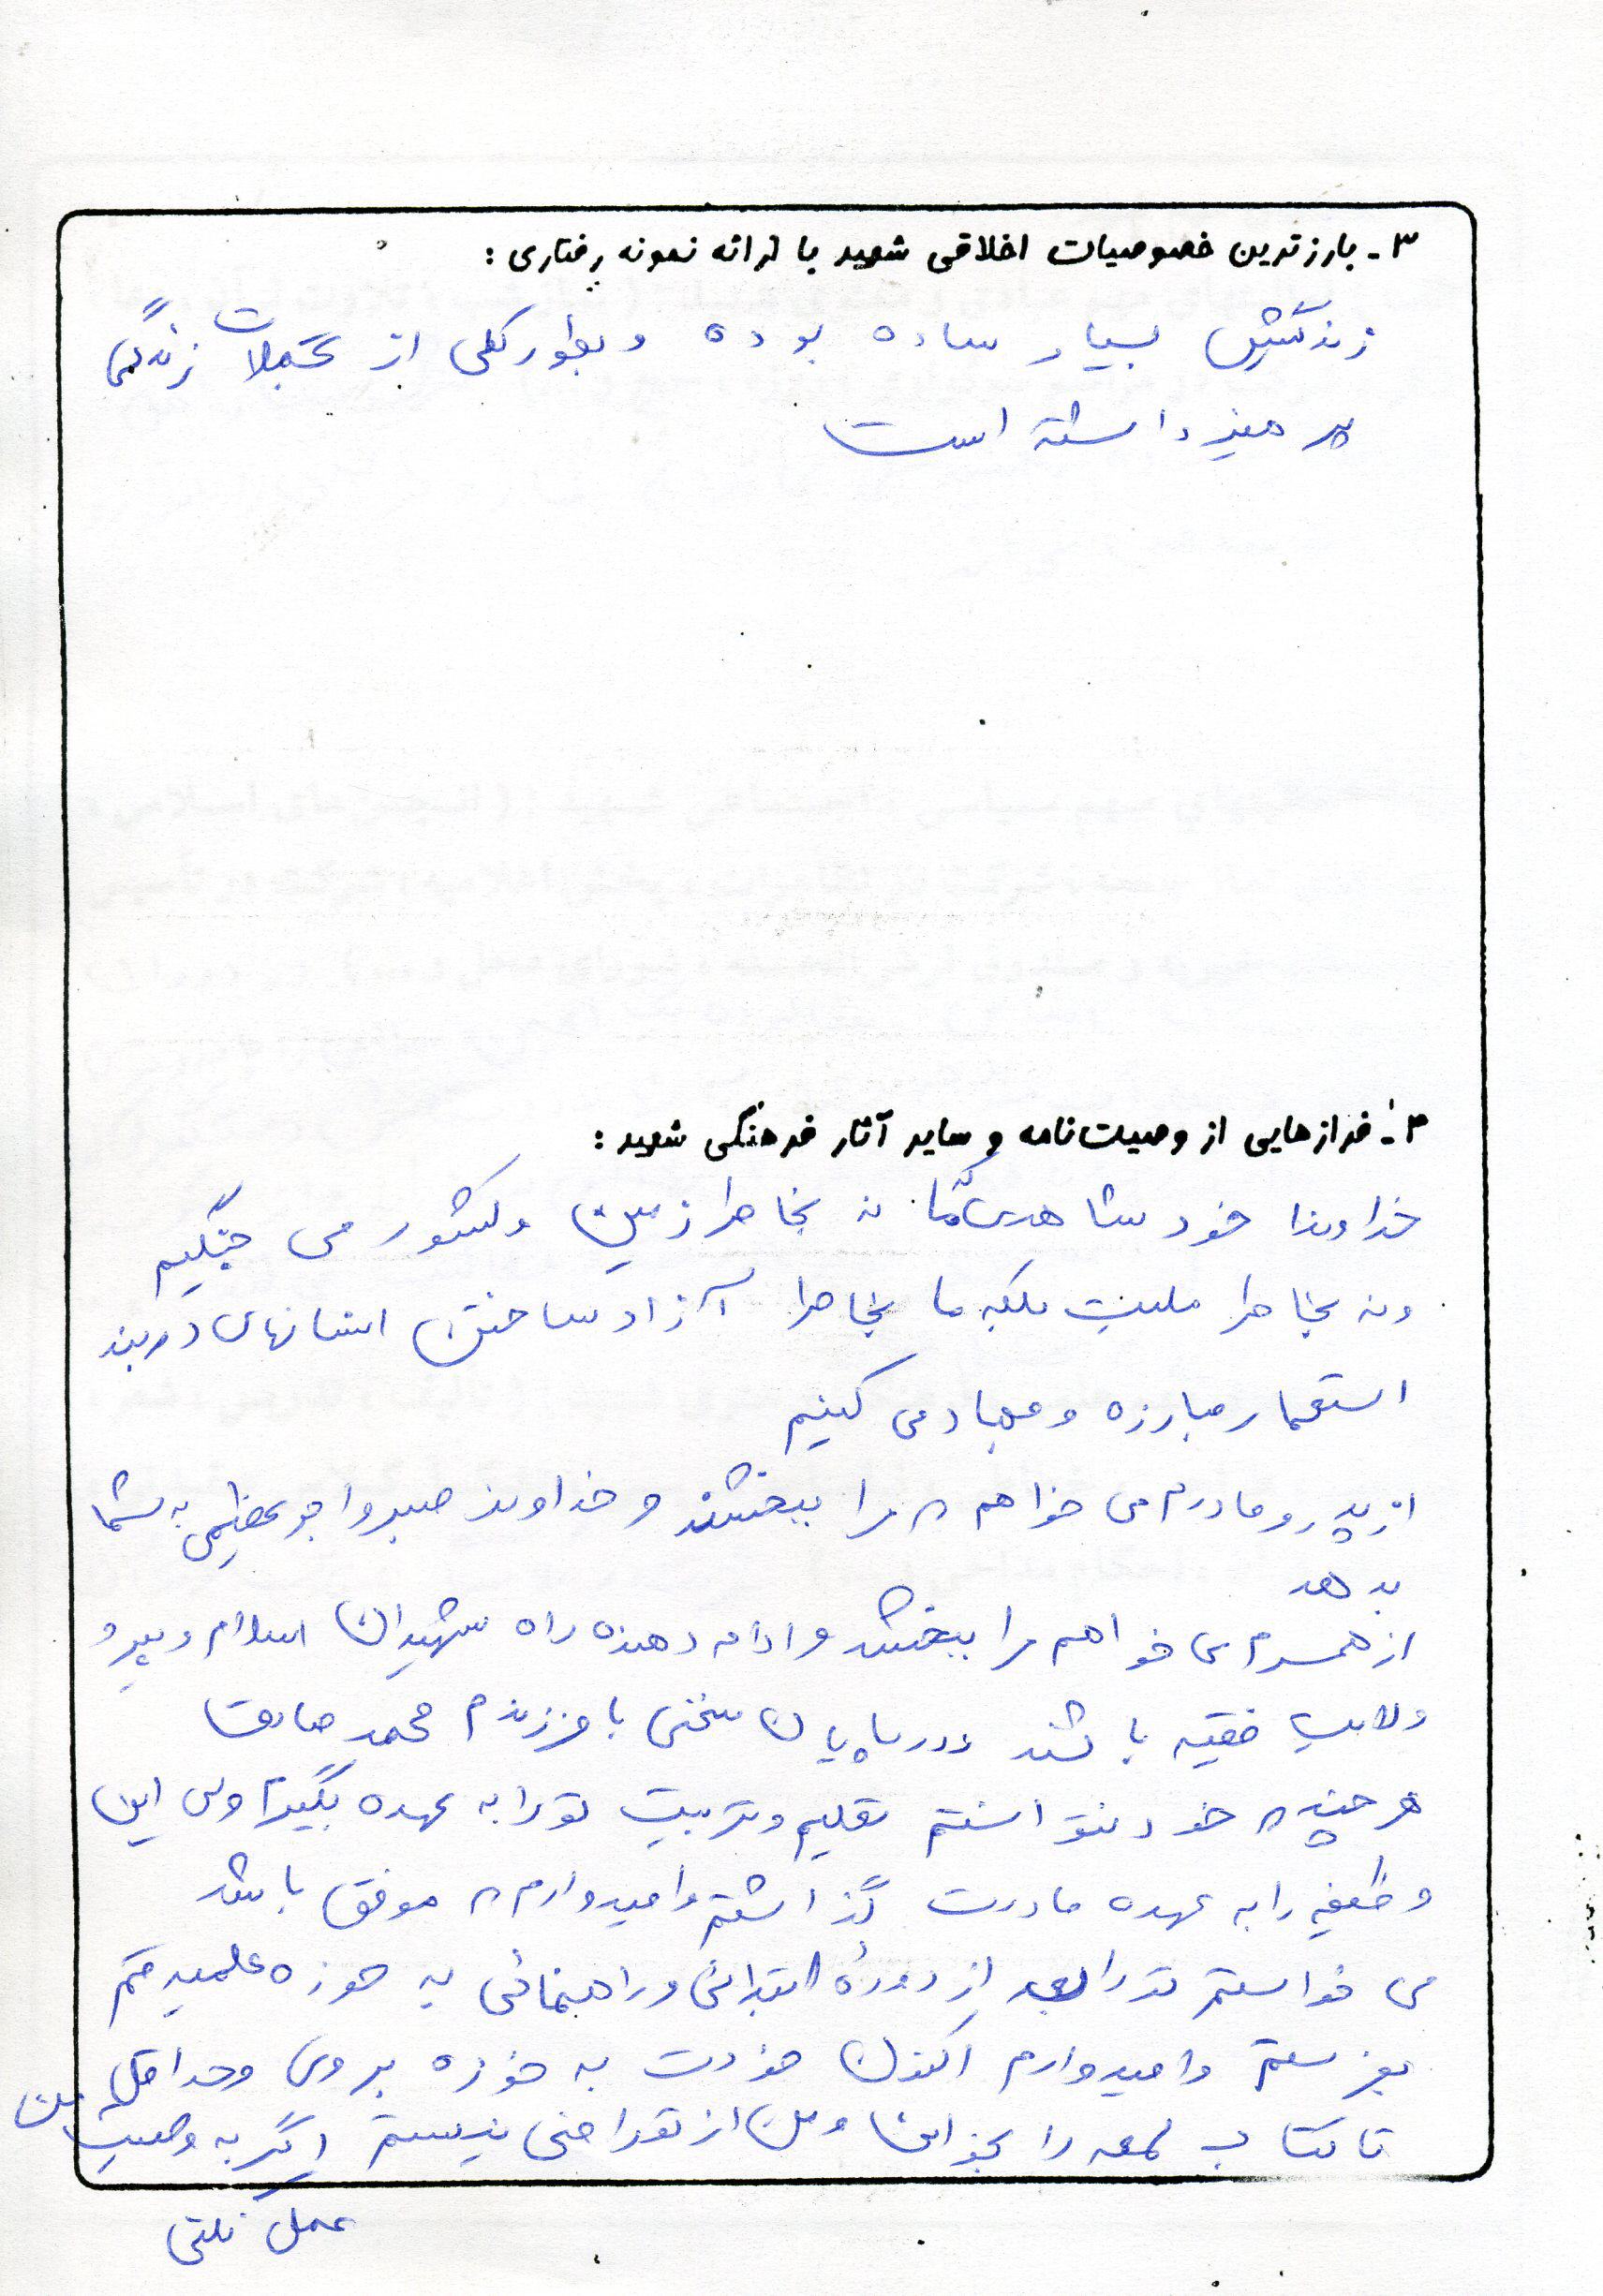 ۳ـ بارزترین خصوصیات اخلاقی شهید با ارائه نمونه رفتاری :
زندگیش بسیار ساده بوده و بطور کلی از تجملات زندگی
پرهیز داشته است
۴ـ فرازهایی از وصیت‌نامه و سایر آثار فرهنگی شهید :
خداوندا خود شاهدی که ما نه بخاطر زمین و کشور می جنگیم
و نه بخاطر ملیت بلکه ما بخاطر آزاد ساختن انسانهای دربند
استعمار مبارزه و جهاد می کنیم
از پدر و مادرم می خواهم که مرا ببخشند و خداوند صبر و اجر عظیمی به شما
بدهد
از همسرم می خواهم مرا ببخشد و ادامه دهنده راه شهیدان اسلام و پیرو
ولایت فقیه باشد و در پایان سخنی با فرزندم محمد صادق
هر چند که خود نتوانستم تعلیم و تربیت تو را به عهده بگیرم ولی این
وظیفه را به عهده مادرت گذاشتم و امیدوارم که موفق باشد
می خواستم تو را بعد از دورهٔ ابتدائی و راهنمائی به حوزه علمیه قم
بفرستم و امیدوارم اکنون خودت به حوزه بروی و حداقل
تا کتاب لمعه را بخوانی و من از تو راضی نیستم اگر به وصیت من
عمل نکنی